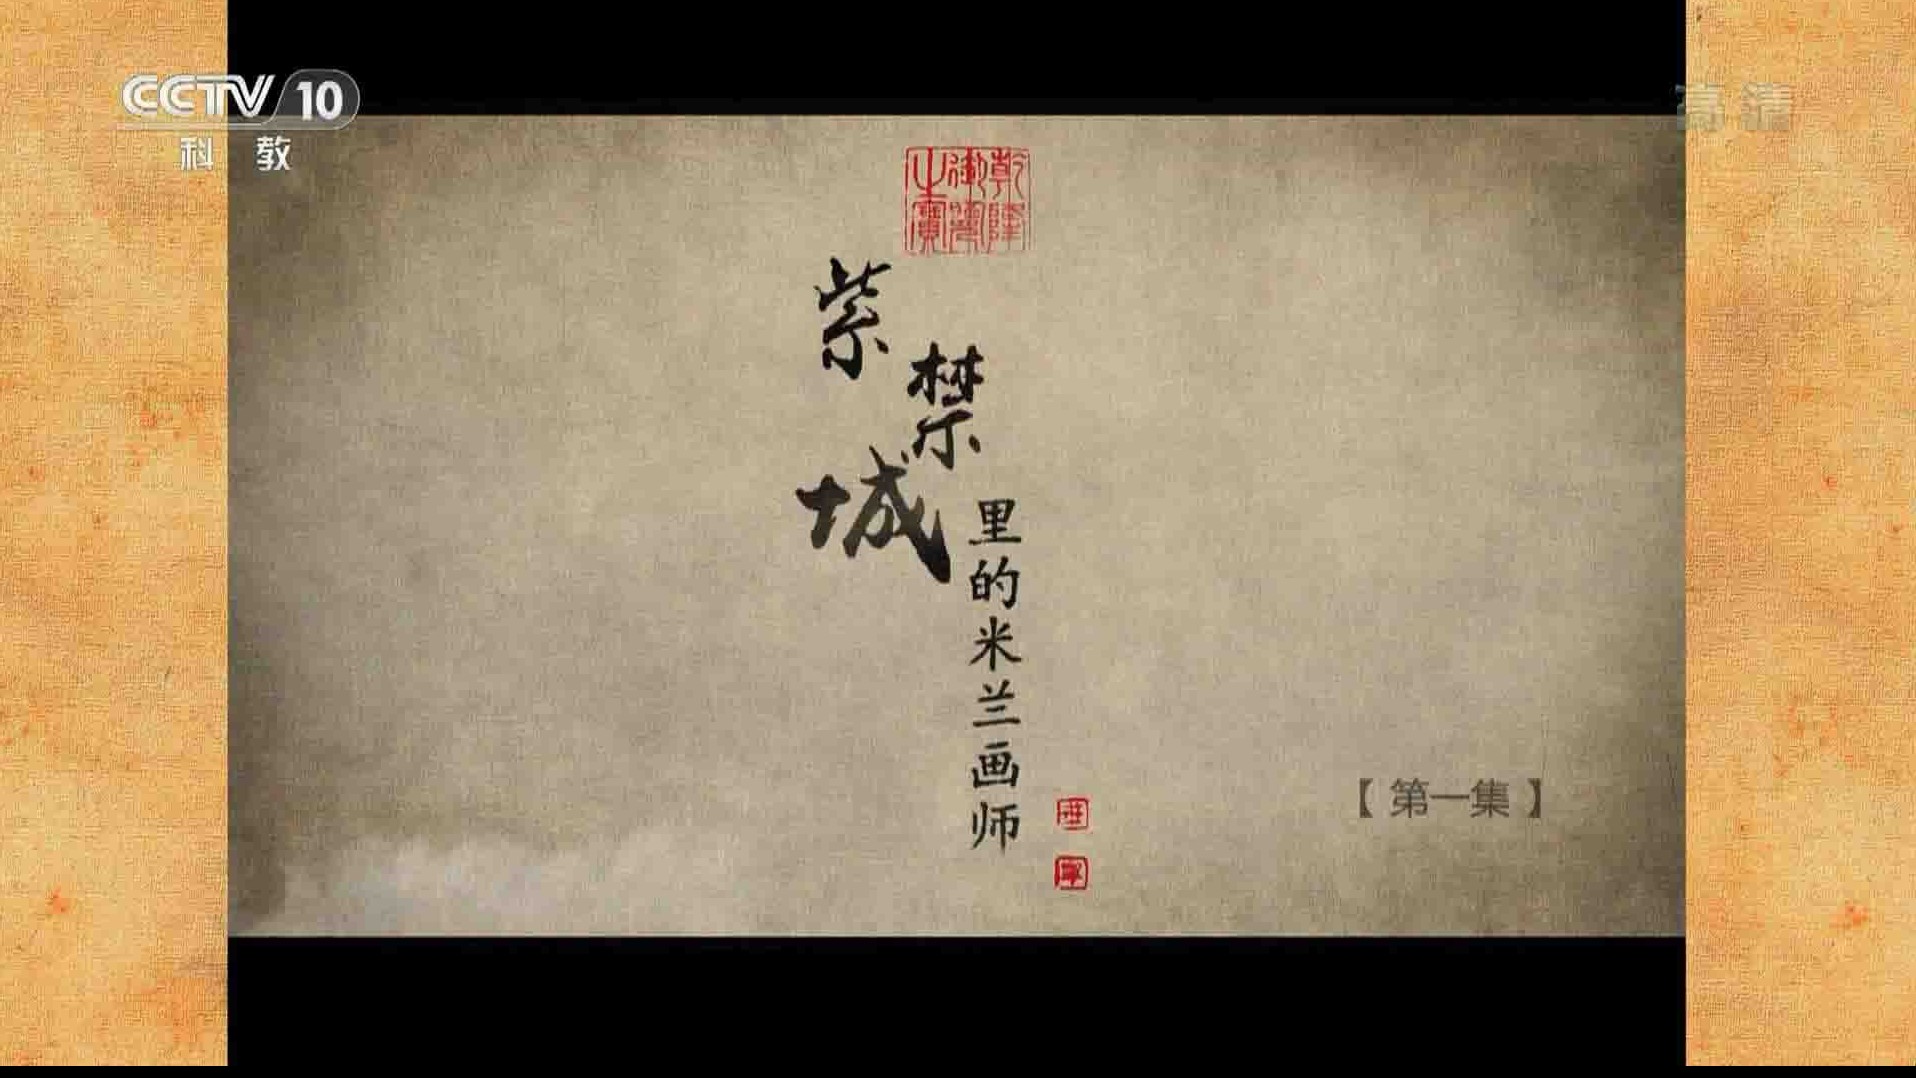 CCTV 10
科教
高清
乾隆御覽之寶
紫禁城
里的米兰画师
【第一集】